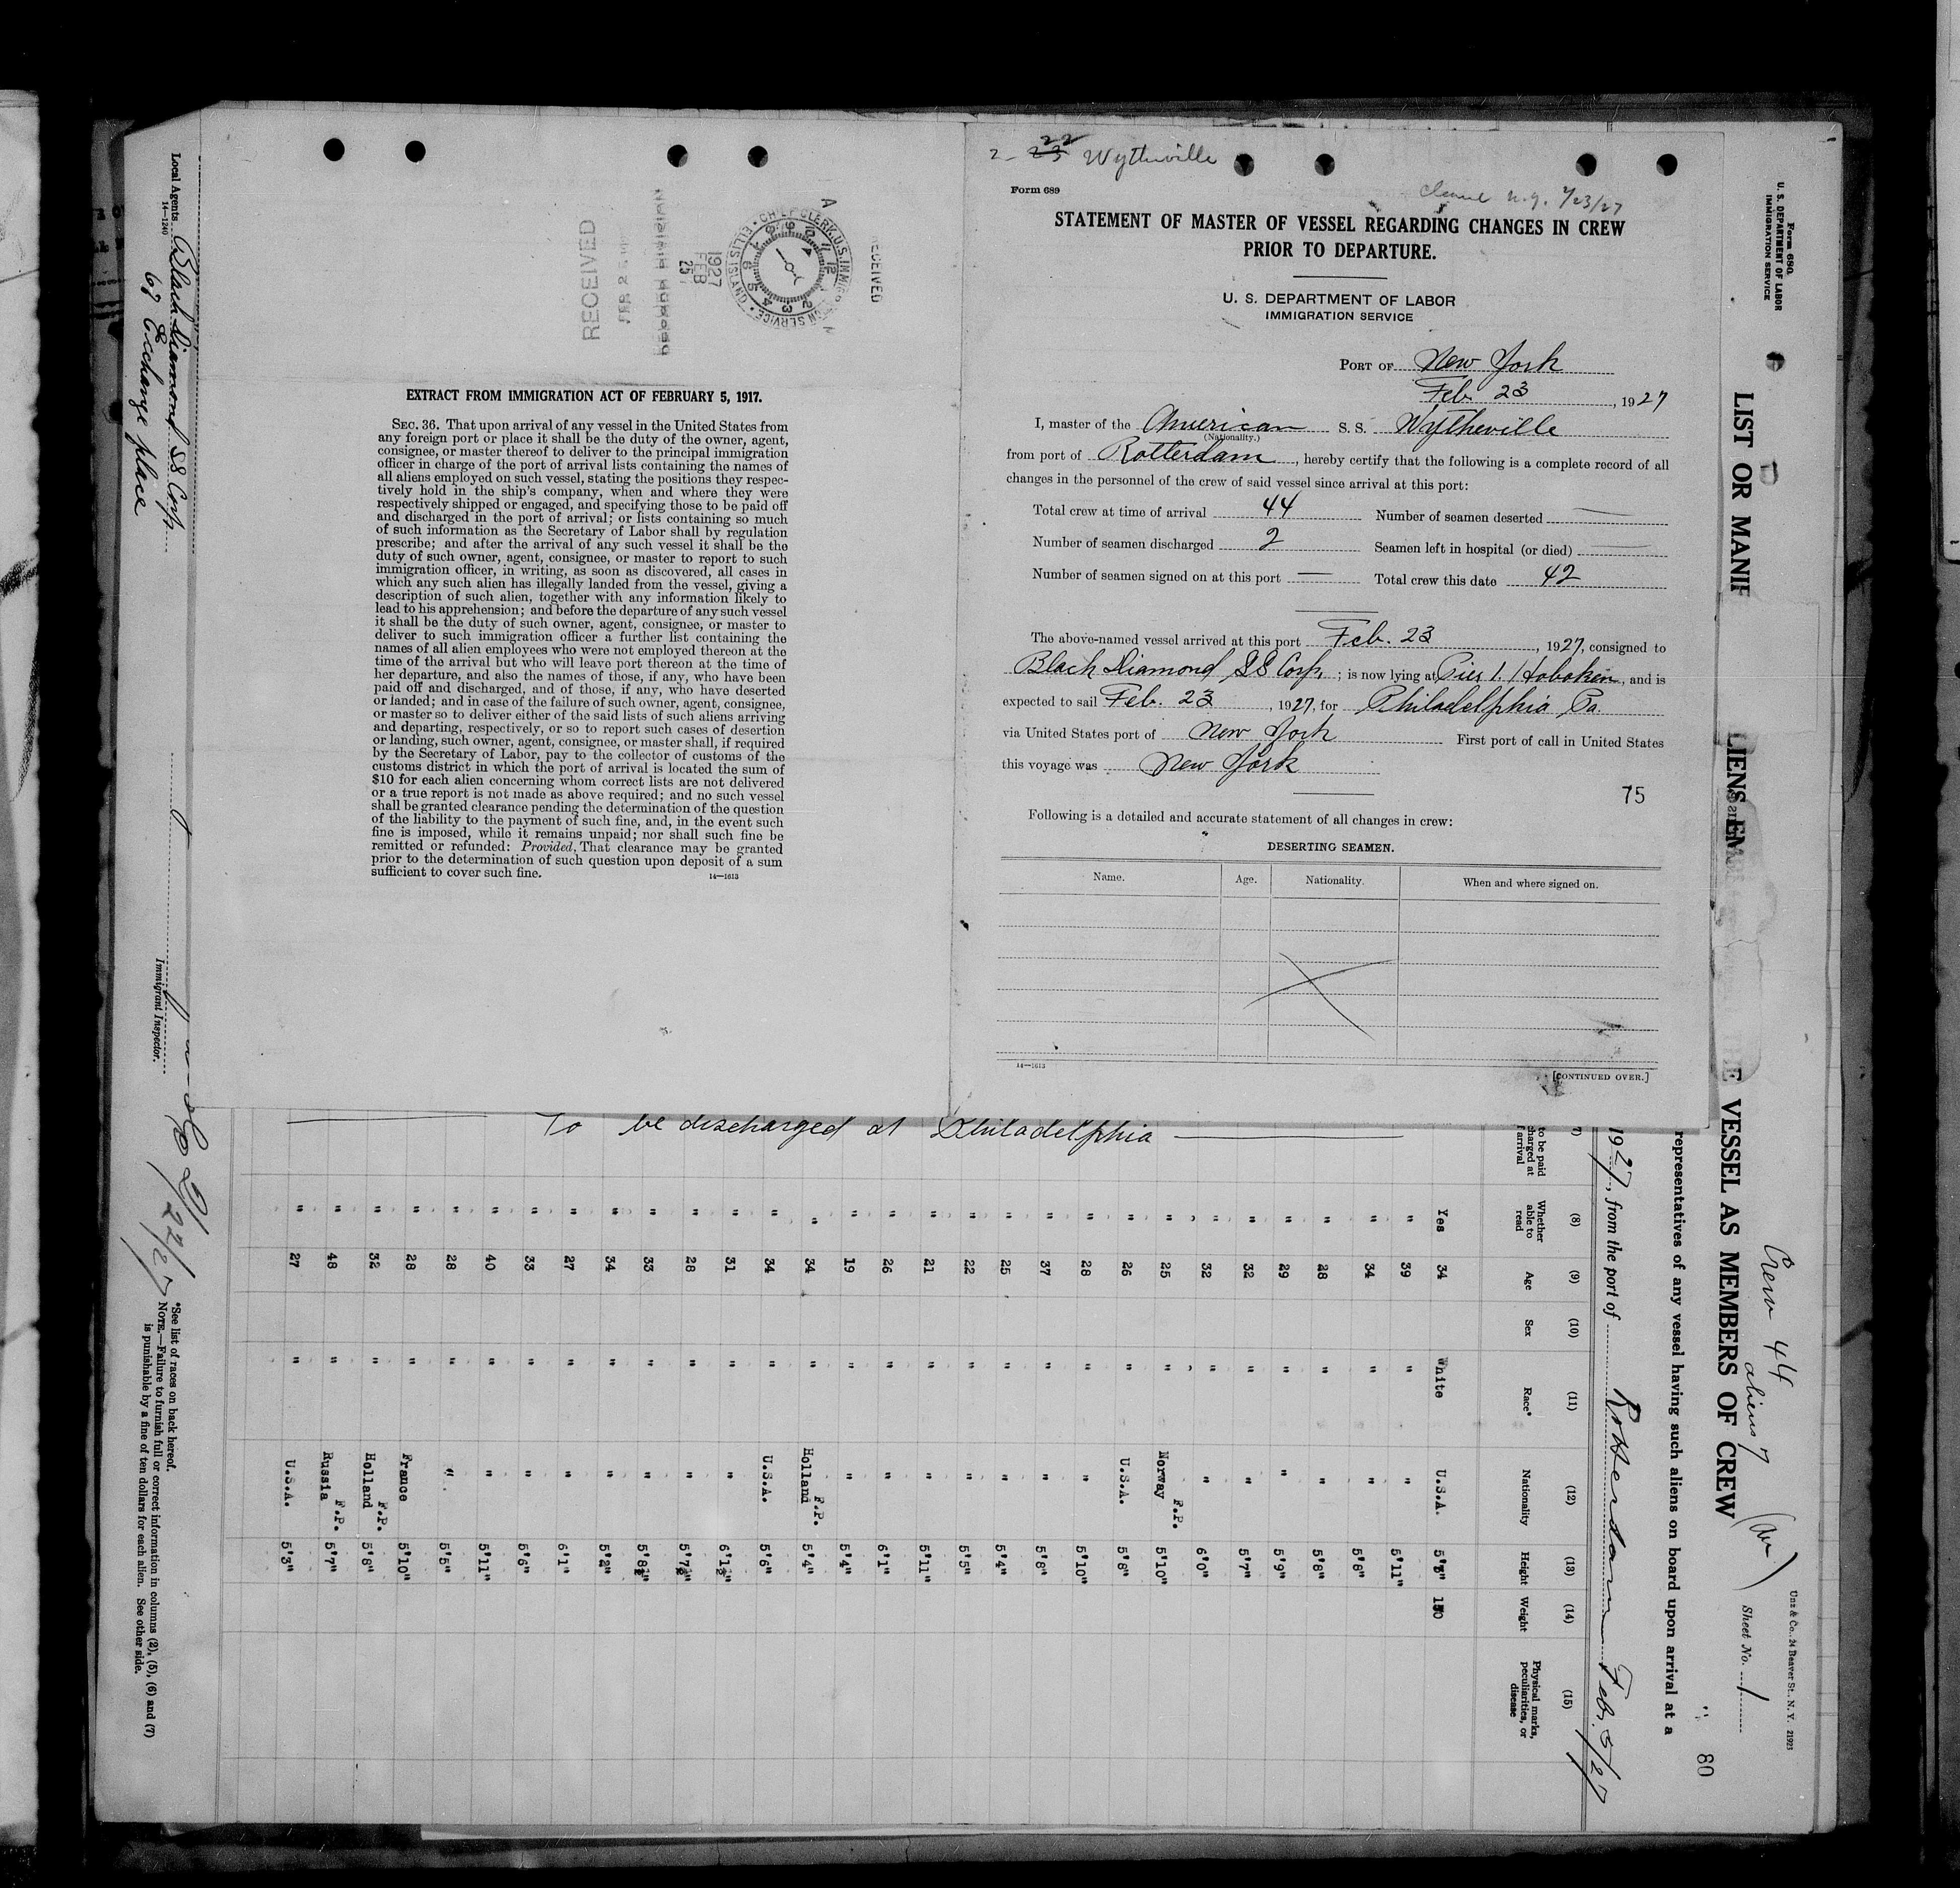 2- 22 23 Wytheville
Cleared N.Y. 2/23/27
Form 689
STATEMENT OF MASTER OF VESSEL REGARDING CHANGES IN CREW
PRIOR TO DEPARTURE.
U. S. DEPARTMENT OF LABOR
IMMIGRATION SERVICE
PORT OF New York
Feb. 23, 1927
I, master of the American S. S. Wytheville
(Nationality.)
from port of Rotterdam, hereby certify that the following is a complete record of all
changes in the personnel of the crew of said vessel since arrival at this port:
Total crew at time of arrival 44 Number of seamen deserted —
Number of seamen discharged 2 Seamen left in hospital (or died) —
Number of seamen signed on at this port — Total crew this date 42
The above-named vessel arrived at this port Feb. 23, 1927, consigned to
Black Diamond SS Corp.; is now lying at Pier 1. Hoboken, and is
expected to sail Feb. 23, 1927, for Philadelphia Pa.
via United States port of New York First port of call in United States
this voyage was New York
75
Following is a detailed and accurate statement of all changes in crew:
DESERTING SEAMEN.
Name. Age. Nationality. When and where signed on.
14—1613
[CONTINUED OVER.]
RECEIVED
FEB 25
RECEIVED
CHIEF CLERK, U.S. IMMIGRATION SERVICE ELLIS ISLAND
1927
FEB
25
EXTRACT FROM IMMIGRATION ACT OF FEBRUARY 5, 1917.
SEC. 36. That upon arrival of any vessel in the United States from
any foreign port or place it shall be the duty of the owner, agent,
consignee, or master thereof to deliver to the principal immigration
officer in charge of the port of arrival lists containing the names of
all aliens employed on such vessel, stating the positions they respec-
tively hold in the ship's company, when and where they were
respectively shipped or engaged, and specifying those to be paid off
and discharged in the port of arrival; or lists containing so much
of such information as the Secretary of Labor shall by regulation
prescribe; and after the arrival of any such vessel it shall be the
duty of such owner, agent, consignee, or master to report to such
immigration officer, in writing, as soon as discovered, all cases in
which any such alien has illegally landed from the vessel, giving a
description of such alien, together with any information likely to
lead to his apprehension; and before the departure of any such vessel
it shall be the duty of such owner, agent, consignee, or master to
deliver to such immigration officer a further list containing the
names of all alien employees who were not employed thereon at the
time of the arrival but who will leave port thereon at the time of
her departure, and also the names of those, if any, who have been
paid off and discharged, and of those, if any, who have deserted
or landed; and in case of the failure of such owner, agent, consignee,
or master so to deliver either of the said lists of such aliens arriving
and departing, respectively, or so to report such cases of desertion
or landing, such owner, agent, consignee, or master shall, if required
by the Secretary of Labor, pay to the collector of customs of the
customs district in which the port of arrival is located the sum of
$10 for each alien concerning whom correct lists are not delivered
or a true report is not made as above required; and no such vessel
shall be granted clearance pending the determination of the question
of the liability to the payment of such fine, and, in the event such
fine is imposed, while it remains unpaid; nor shall such fine be
remitted or refunded: Provided, That clearance may be granted
prior to the determination of such question upon deposit of a sum
sufficient to cover such fine.
14—1613
Form 680
U. S. DEPARTMENT OF LABOR
IMMIGRATION SERVICE
Unz & Co., 24 Beaver St., N. Y. 21923
Crew 44
aliens 7
Sheet No. 1
80
LIST OR MANIF
LIENS EM
VESSEL AS MEMBERS OF CREW
representatives of any vessel having such aliens on board upon arrival at a
1927, from the port of Rotterdam Feb. 5/27
(7) to be paid charged at arrival (8) Whether able to read (9) Age (10) Sex (11) Race* (12) Nationality (13) Height (14) Weight (15) Physical marks, peculiarities, or disease
Yes 34 White U.S.A. 5'3" 150
" 39 " " 5'11"
" 34 " " 5'8"
" 28 " " 5'8"
" 29 " " 5'9"
" 32 " " 5'7"
" 32 " " 6'0"
" 25 " Norway F.P. 5'10"
" 26 " U.S.A. 5'8"
" 28 " " 5'10"
" 37 " " 5'8"
" 25 " " 5'4"
" 22 " " 5'5"
" 21 " " 5'11"
" 26 " " 6'1"
" 19 " " 5'4"
" 34 " Holland F.P. 5'4"
" 34 " U.S.A. 5'6"
" 31 " " 6'1½"
" 28 " " 5'7½"
" 33 " " 5'8½"
" 34 " " 5'2"
" 27 " " 6'1"
" 33 " " 5'6"
" 40 " " 5'11"
" 28 " " 5'5"
" 28 " France 5'10"
" 32 " Holland F.P. 5'8"
" 48 " Russia F.P. 5'7"
" 27 " U.S.A. 5'3"
To be discharged at Philadelphia
Local Agents Black Diamond SS Corp.
14—1240
67 Exchange place
Immigrant Inspector.
2/22/27
*See list of races on back hereof.
NOTE.—Failure to furnish full or correct information in columns (2), (5), (6) and (7)
is punishable by a fine of ten dollars for each alien. See other side.